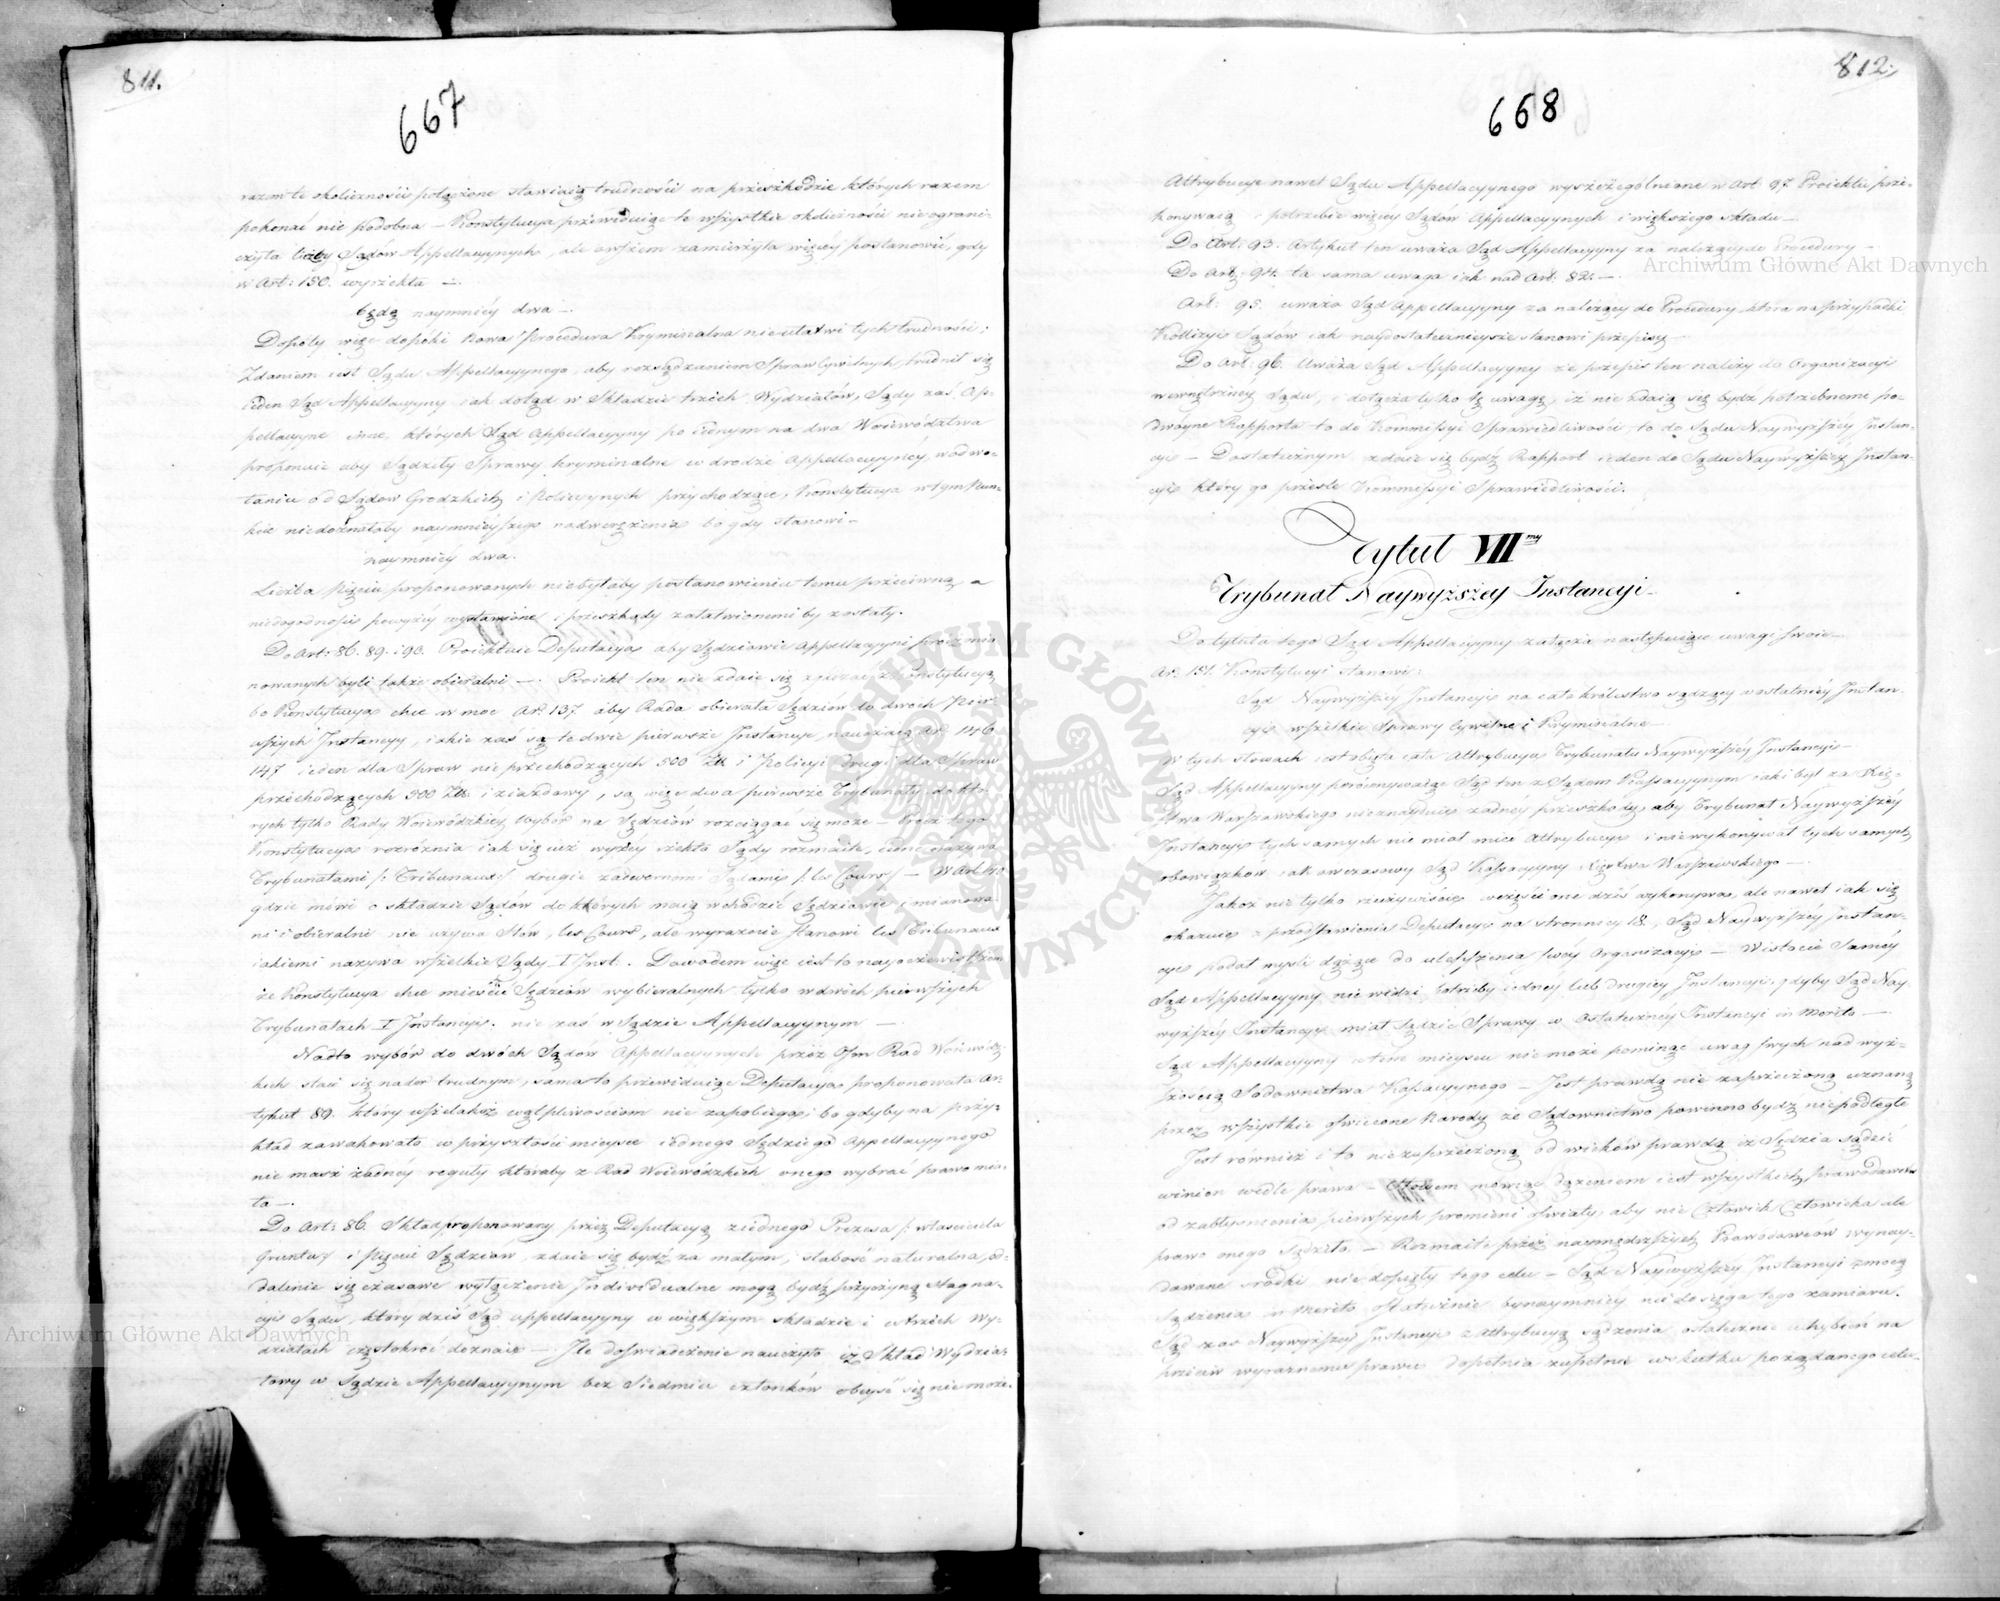 811.
667
razem te okoliczności połączone stawiaią trudności na przeszkodzie których razem
pokonać nie podobna — Konstytucya przewiduiąc te wszystkie okoliczności nie ograni-
czyła liczby Sądów Appellacyynych, ale owszem zamierzyła więcéy postanowić, gdy
w Art: 150. wyrzekła —
będą naymniéy dwa —
Dopóty więc dopóki Nowa Procedura Kryminalna nie ułatwi tych trudności;
Zdaniem iest Sądu Appellacyynego, aby rozsądzaniem Spraw Cywilnych, trudnił się
ieden Sąd Appellacyyny iak dotąd w Składzie trzech Wydziałów, Sądy zaś Ap-
pellacyyne inne, których Sąd Appellacyyny po iednym na dwa Woiewództwa
proponuie aby Sądziły Sprawy kryminalne w drodze Appellacyyney, w odwo-
łaniu od Sądow Grodzkich i Policyynych przychodzące, Konstytucya w tym Pun-
kcie niedoznałaby naymnieyszego nadwerężenia bo gdy stanowi —
naymniéy dwa.
Liczba Pięciu proponowanych niebyłaby postanowieniu temu przeciwną, a
niedogodności powyżéy wystawione i przeszkody załatwionemi by zostały.
Do Art: 86. 89. i 90. Proiektuie Deputacya aby Sędziowie Appellacyyni prócz mia
nowanych byli także obieralni —. Proiekt ten nie zdaie się zgadzać z Konstytucyą
bo Konstytucya chce w moc Art. 137. aby Rada obierała Sędziów do dwoch Pierw-
szych Instancyy, iakie zaś są te dwie pierwsze Instancye, nauczaią Art. 146
147 ieden dla Spraw nie przechodzących 500 Zł. i Policyi drugi dla Spraw
przechodzących 500 Zł. i ziazdowy, są więc dwa pierwsze Trybunały do któ-
rych tylko Rady Woiewódzkiey Wybór na Sędziów rozciągać się może — Prócz tego
Konstytucya rozróżnia iak się iuż wyżey rzekło Sądy rozmaite, iedne nazywa
Trybunałami /: Tribunaux :/ drugie zadwornemi Sądami /: les Cours / — W Art. 140
gdzie mówi o składzie Sądów do których maią wchodzić Sędziowie i mianowa-
ni i obieralni nie używa Słów, les Cours, ale wyrażenie stanowi les Tribunaux
iakiemi nazywa wszelkie Sądy I Inst. . Dowodem więc iest to nayoczewistszem
że Konstytucya chce mieścić Sędziów wybieralnych tylko w dwóch pierwszych
Trybunałach I Instancyi. nie zaś w Sądzie Appellacyynym —
Nadto wybór do dwóch Sądów Appellacyynych przez Ośm Rad Woiewódz-
kich staie się nader trudnym, sama to przewiduiąc Deputacya proponowała Ar-
tykuł 89. który wszelakoż wątpliwościom nie zapobiega, bo gdyby na przy-
kład zawakowało w przyszłości mieysce iednego Sędziego Appellacyynego
nie masz żadnéy reguły któraby z Rad Woiewódzkich onego wybrać prawo mia-
ła —.
Do Art: 86. Skład proponowany przez Deputacyą z iednego Prezesa /: właściciela
gruntu :/ i Pięciu Sędziów, zdaie się bydź za małym, słabość naturalna, od-
dalenie się czasowe wyłączenie Individualne mogą bydź przyczyną stagna-
cyi Sądu, który dziś Sąd appellacyyny w większym składzie i w trzech Wy-
działach częstokroć doznaie — Ile doświadczenie nauczyło iż Skład Wydzia-
łowy w Sądzie Appellacyynym bez Siedmiu członków obeyść się nie może.
812.
668
Attrybucye nawet Sądu Appellacyynego wyszczególnione w Art: 97. Proiektu prze-
konywaią o potrzebie więcéy Sądów Appellacyynych i większego składu —
Do Art: 93. Artykuł ten uważa Sąd Appellacyyny za należący do Procedury —
Do Art: 94. ta sama uwaga iak nad Art: 82. —
Art: 95. uważa Sąd Appellacyyny za należący do Procedury, która na przypadki
Kollizyi Sądów iak naydostatecznieysze stanowi przepisy —
Do Art: 96. Uważa Sąd Appellacyyny że przepis ten należy do Organizacyi
wewnętrznéy Sądu, i dołącza tylko tę uwagę, iż nie zdaią się bydź potrzebneme po-
dwoyne Rapporta to do Kommissyi Sprawiedliwości, to do Sądu Naywyższéy Instan-
cyi — Dostatecznym zdaie się bydź Rapport ieden do Sądu Naywyższéy Instan-
cyi który go prześle Kommissyi Sprawiedliwości.
Tytuł VII my
Trybunał Naywyższey Instancyi —
Do tytułu tego Sąd Appellacyyny załącza następuiące uwagi swoie —
Ar. 151. Konstytucyi stanowi:
Sąd Naywyższéy Instancyi na całe Królestwo sądzący w ostatniéy Instan-
cyi wszelkie Sprawy Cywilne i Kryminalne —
W tych słowach iest obięta cała Attrybucya Trybunału Naywyższéy Instancyi —
Sąd Appellacyyny porównywaiąc Sąd ten z Sądem Kassacyynym iaki był za Xię-
stwa Warszawskiego nieznayduie żadney przeszkody, aby Trybunał Naywyższéy
Instancyi tych samych nie miał mieć Attrybucyi i nie wykonywał tych samych
obowiązkow iak owczasowy Sąd Kassacyyny Xięstwa Warszawskiego —
Jakoż nie tylko rzeczywiście w części one dziś wykonywa, ale nawet iak się
okazuie z przedstawienia Deputacyi na stronnicy 18., Sąd Naywyższéy Instan-
cyi podał myśli dążące do ulepszenia swéy Organizacyi — W istocie saméy
Sąd Appellacyyny nie widzi potrzeby iednéy lub drugiey Instancyi, gdyby Sąd Nay-
wyższéy Instancyi miał Sądzić Sprawy w Ostateczney Instancyi in merito —
Sąd Appellacyyny w tem mieyscu nie może pominąć uwag swych nad wyż-
szością Sądownictwa Kassacyynego — Jest prawdą nie zaprzeczoną uznaną
przez wszystkie oświecone Narody że Sądownictwo powinno bydź niepodległe
Jest również i to niezaprzeczoną od wieków prawdą iż Sędzia sądzić
winien wedle prawa — mówiąc dążeniem iest wszystkich prawodawców
od zabłyśnienia pierwszych promieni oświaty, aby nie Człowiek Człowieka ale
prawo onego Sądziło. — Rozmaite przez naymędrszych Prawodawców wynay-
dowane srodki nie dopięły tego celu — Sąd Naywyższéy Instancyi z mocą
sądzenia in merito ostatecznie bynaymniéy nie dosięga tego zamiaru.
Sąd zaś Naywyższéy Instancyi z Attrybucyą sądzenia ostatecznie uchybień na
przeciw wyraźnemu prawu dopełnia zupełnie w skutku pożądanego celu.
Archiwum Główne Akt Dawnych
Archiwum Główne Akt Dawnych
ARCHIWUM GŁÓWNE AKT DAWNYCH